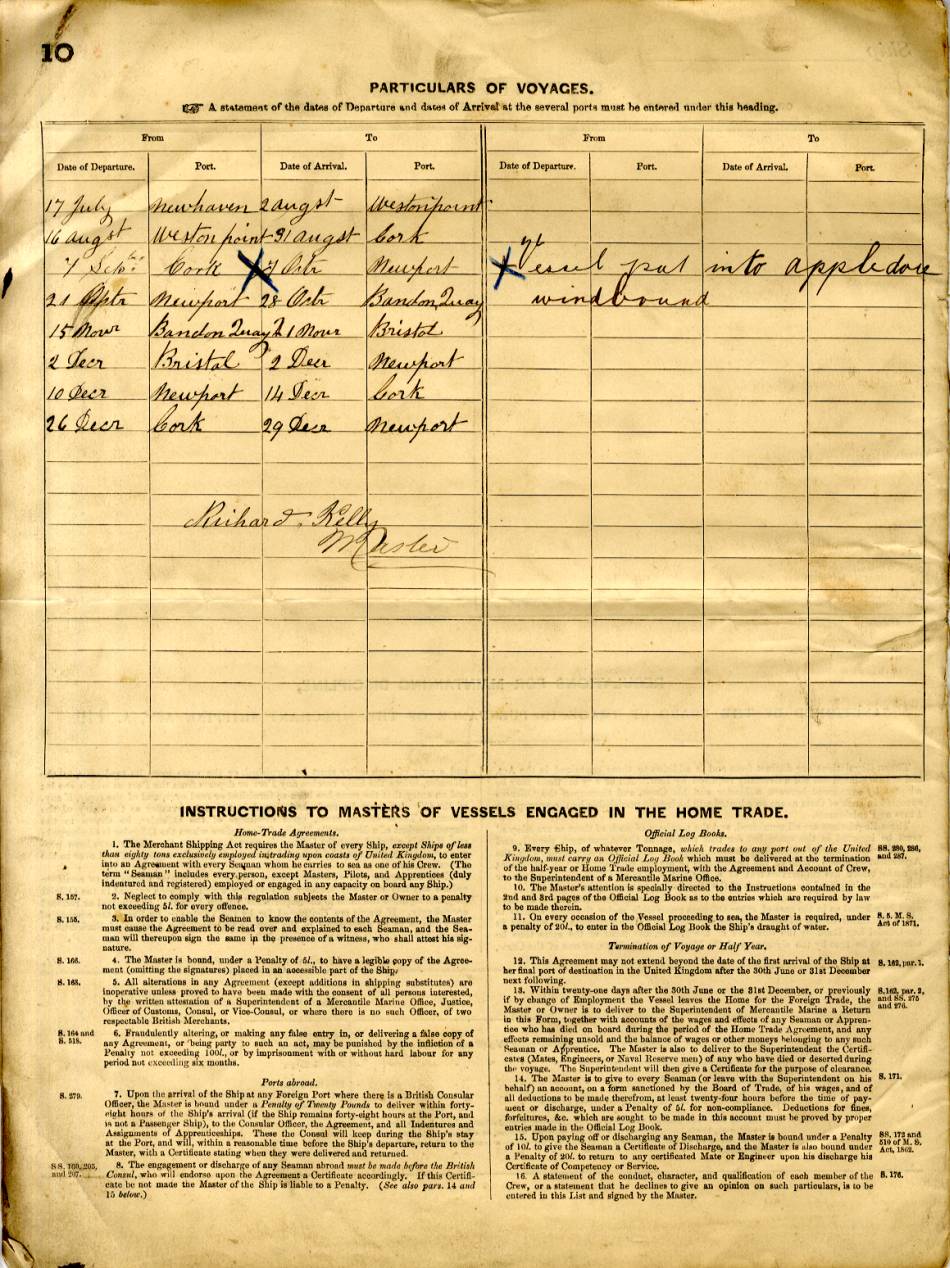 10
PARTICULARS OF VOYAGES.
☞ A statement of the dates of Departure and dates of Arrival at the several ports must be entered under this heading.
From To From To
Date of Departure. Port. Date of Arrival. Port. Date of Departure. Port. Date of Arrival. Port.
17 July Newhaven 2 augst Westonpoint
16 augst Weston point 31 augst Cork
7 Cork X 7 Octr Newport X Vessel put into appledore
21 Newport 28 Octr Bandon Quay windbound
15 Novr Bandon Quay 21 Novr Bristol
2 Decr Bristol 2 Decr Newport
10 Decr Newport 14 Decr Cork
26 Decr Cork 29 Decr Newport
Richard Kelly
Master
INSTRUCTIONS TO MASTERS OF VESSELS ENGAGED IN THE HOME TRADE.
Home-Trade Agreements.
1. The Merchant Shipping Act requires the Master of every Ship, except Ships of less
than eighty tons exclusively employed in trading upon coasts of United Kingdom, to enter
into an Agreement with every Seaman whom he carries to sea as one of his Crew. (The
term "Seaman" includes every person, except Masters, Pilots, and Apprentices (duly
indentured and registered) employed or engaged in any capacity on board any Ship.)
S. 157. 2. Neglect to comply with this regulation subjects the Master or Owner to a penalty
not exceeding 5l. for every offence.
S. 155. 3. In order to enable the Seamen to know the contents of the Agreement, the Master
must cause the Agreement to be read over and explained to each Seaman, and the Sea-
man will thereupon sign the same in the presence of a witness, who shall attest his sig-
nature.
S. 166. 4. The Master is bound, under a Penalty of 5l., to have a legible copy of the Agree-
ment (omitting the signatures) placed in an accessible part of the Ship.
S. 163. 5. All alterations in any Agreement (except additions in shipping substitutes) are
inoperative unless proved to have been made with the consent of all persons interested,
by the written attestation of a Superintendent of a Mercantile Marine Office, Justice,
Officer of Customs, Consul, or Vice-Consul, or where there is no such Officer, of two
respectable British Merchants.
S. 164 and S. 518. 6. Fraudulently altering, or making any false entry in, or delivering a false copy of
any Agreement, or being party to such an act, may be punished by the infliction of a
Penalty not exceeding 100l., or by imprisonment with or without hard labour for any
period not exceeding six months.
Ports abroad.
S. 279. 7. Upon the arrival of the Ship at any Foreign Port where there is a British Consular
Officer, the Master is bound under a Penalty of Twenty Pounds to deliver within forty-
eight hours of the Ship's arrival (if the Ship remains forty-eight hours at the Port, and
is not a Passenger Ship), to the Consular Officer, the Agreement, and all Indentures and
Assignments of Apprenticeships. These the Consul will keep during the Ship's stay
at the Port, and will, within a reasonable time before the Ship's departure, return to the
Master, with a Certificate stating when they were delivered and returned.
SS. 160, 205, and 207. 8. The engagement or discharge of any Seaman abroad must be made before the British
Consul, who will endorse upon the Agreement a Certificate accordingly. If this Certifi-
cate be not made the Master of the Ship is liable to a Penalty. (See also pars. 14 and
15 below.)
Official Log Books.
9. Every Ship, of whatever Tonnage, which trades to any port out of the United SS. 280, 286,
Kingdom, must carry an Official Log Book which must be delivered at the termination and 287.
of the half-year or Home Trade employment, with the Agreement and Account of Crew,
to the Superintendent of a Mercantile Marine Office.
10. The Master's attention is specially directed to the Instructions contained in the
2nd and 3rd pages of the Official Log Book as to the entries which are required by law
to be made therein.
11. On every occasion of the Vessel proceeding to sea, the Master is required, under S. 5. M. S.
a penalty of 20l., to enter in the Official Log Book the Ship's draught of water. Act of 1871.
Termination of Voyage or Half Year.
12. This Agreement may not extend beyond the date of the first arrival of the Ship at S. 162, par. 1.
her final port of destination in the United Kingdom after the 30th June or 31st December
next following.
13. Within twenty-one days after the 30th June or the 31st December, or previously S. 162, par. 2,
if by change of Employment the Vessel leaves the Home for the Foreign Trade, the and SS. 275
Master or Owner is to deliver to the Superintendent of Mercantile Marine a Return and 276.
in this Form, together with accounts of the wages and effects of any Seaman or Appren-
tice who has died on board during the period of the Home Trade Agreement, and any
effects remaining unsold and the balance of wages or other moneys belonging to any such
Seaman or Apprentice. The Master is also to deliver to the Superintendent the Certifi-
cates (Mates, Engineers, or Naval Reserve men) of any who have died or deserted during
the voyage. The Superintendent will then give a Certificate for the purpose of clearance.
14. The Master is to give to every Seaman (or leave with the Superintendent on his S. 171.
behalf) an account, on a form sanctioned by the Board of Trade, of his wages, and of
all deductions to be made therefrom, at least twenty-four hours before the time of pay-
ment or discharge, under a Penalty of 5l. for non-compliance. Deductions for fines,
forfeitures, &c. which are sought to be made in this account must be proved by proper
entries made in the Official Log Book.
15. Upon paying off or discharging any Seaman, the Master is bound under a Penalty SS. 172 and
of 10l. to give the Seaman a Certificate of Discharge, and the Master is also bound under 510 of M. S.
a Penalty of 20l. to return to any certificated Mate or Engineer upon his discharge his Act, 1862.
Certificate of Competency or Service.
16. A statement of the conduct, character, and qualification of each member of the S. 176.
Crew, or a statement that he declines to give an opinion on such particulars, is to be
entered in this List and signed by the Master.